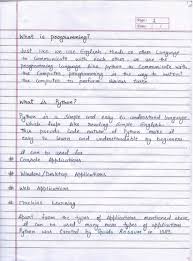 Page: 1
Date:
What is programming?
Just like we use English Hindi or other language
to communicate with each other, we use the
programming language like python to communicate with
the computer. programming is the way to instruct
the computer to perform various tasks.
What is Python?
Python is a simple and easy to understand language
which feels like reading simple English.
This pseudo code nature of Python makes it
easy to learn and understandable by beginners.
it is used for
# Console Applications
# Window/Desktop Applications
# Web Applications
# Machine Learning
Apart from the types of applications mentioned above,
it can be used many more types of applications
Python was created by Guido Rossum in